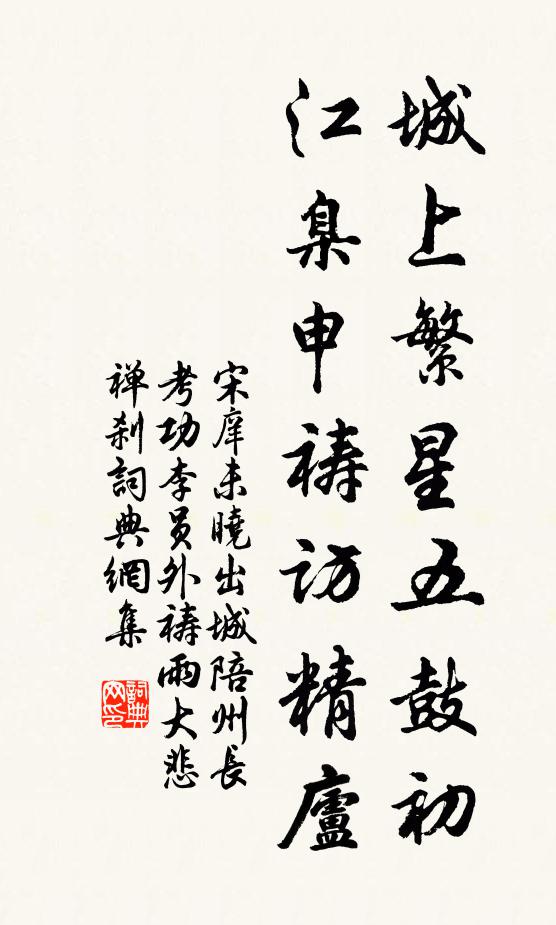 城上繁星五鼓初
江臯申祷访精廬
宋庠未曉出城陪州長
考功李员外祷雨大悲
禅刹詞典網集
詞典网印